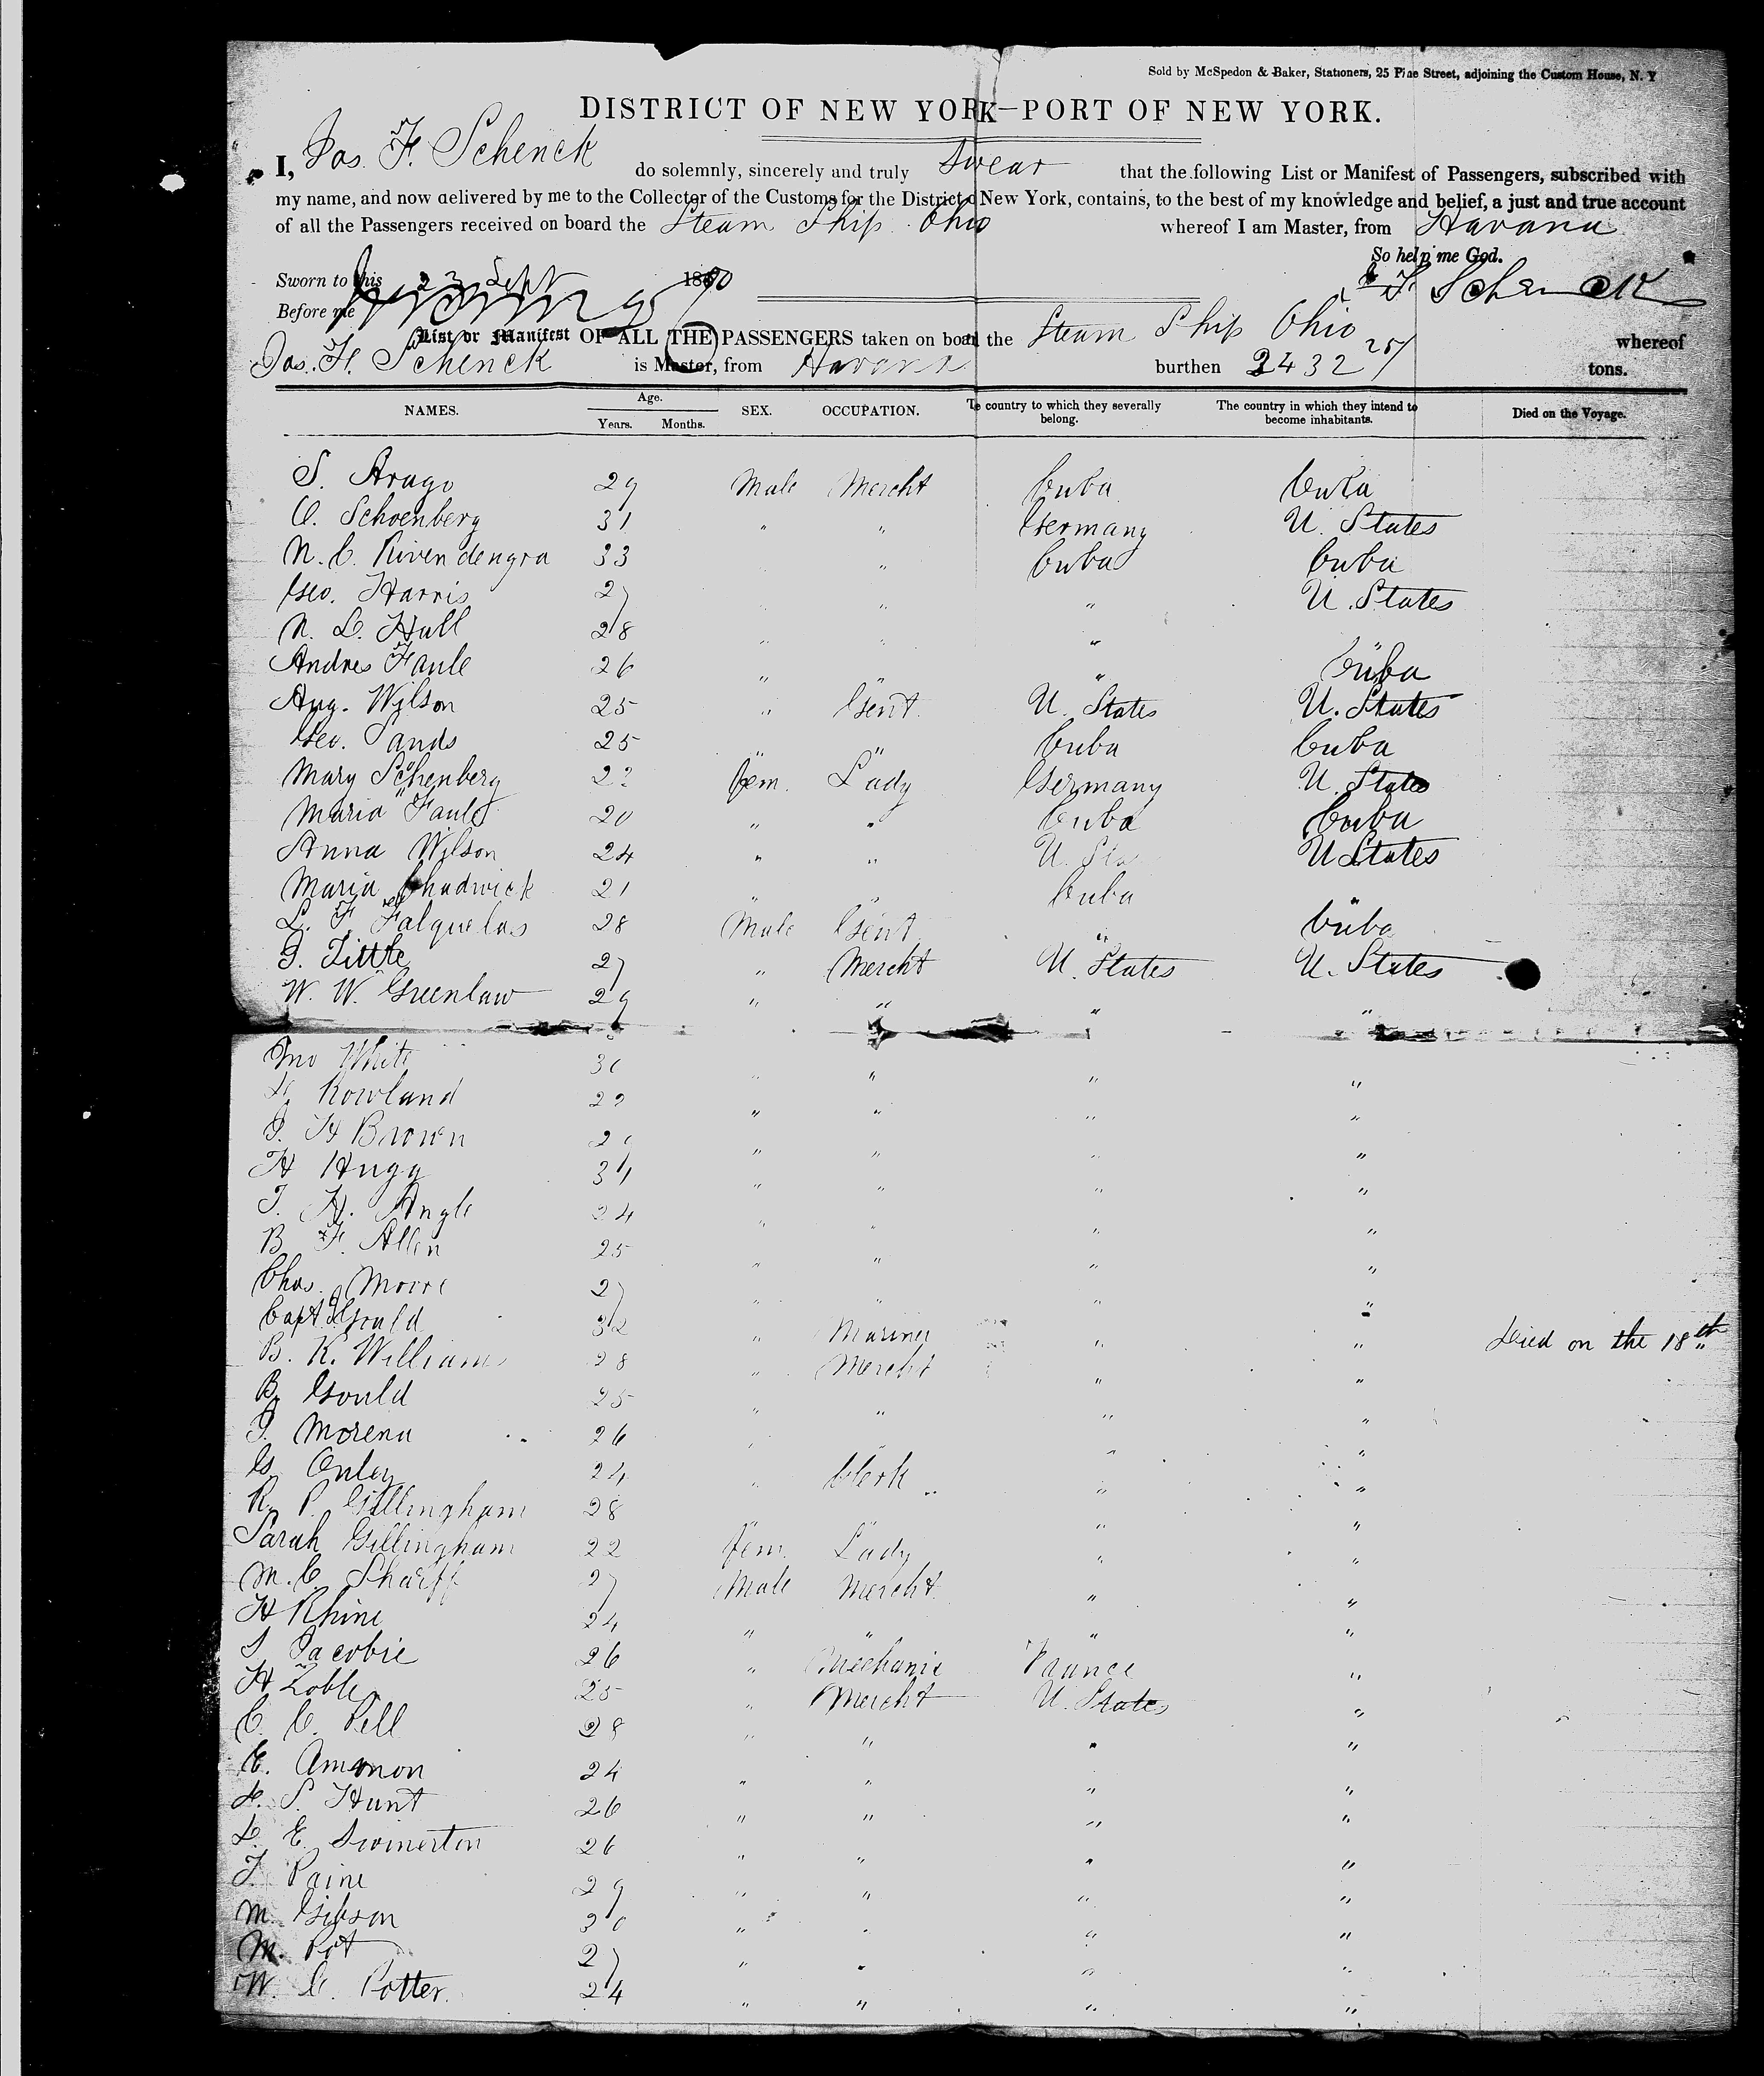 Sold by McSpedon & Baker, Stationers, 25 Pine Street, adjoining the Custom House, N. Y
DISTRICT OF NEW YORK—PORT OF NEW YORK.
I, Jas. F. Schenck do solemnly, sincerely and truly Swear that the following List or Manifest of Passengers, subscribed with
my name, and now delivered by me to the Collector of the Customs for the District of New York, contains, to the best of my knowledge and belief, a just and true account
of all the Passengers received on board the Steam Ship Ohio whereof I am Master, from Havana
So help me God.
Sworn to this 23 Sept 1850
J F Schenck
Before me
List or Manifest OF ALL THE PASSENGERS taken on board the Steam Ship Ohio whereof
Jas. F. Schenck is Master, from Havana burthen 2432 tons.
NAMES. Age. Years. Months. SEX. OCCUPATION. The country to which they severally belong. The country in which they intend to become inhabitants. Died on the Voyage.
S. Arago 29 Male Mercht Cuba Cuba
O. Schoenberg 31 " " Germany U. States
N. C. Rivendengra 33 " Cuba Cuba
Geo. Harris 27 " " " U. States
N. L. Hall 28 " " "
Andres Faule 26 " " " Cuba
Aug. Wilson 25 " Gent. U. States U. States
Geo. Sands 25 " " Cuba Cuba
Mary Schenberg 22 Fem. Lady Germany U. States
Maria Faule 20 " " Cuba Cuba
Anna Wilson 24 " " U. Sta U States
Maria Chadwick 21 " " Cuba "
L. F. Falquelas 28 Male Gent " Cuba
J. Little 27 " Mercht U. States U. States
W. W. Greenlaw 29 " " " "
Jno White 30 " " " "
Rowland 22 " " " "
J. H Brown " " " "
H Hugg 34 " " " "
T. H. Angle 24 " " " "
B F. Allen 25 " " " "
Chas. Moore 27 " " " "
Capt Gould 32 " Mariner " " Died on the 18th
B. K. Williams 28 " Mercht " "
B. Gould 25 " " " "
J. Morena 26 " " " "
G. Onley 24 " Clerk " "
R. P. Gillingham 28 " " " "
Sarah Gillingham 22 Fem. Lady " "
M. C. Sharff 27 Male Mercht. " "
H Rhine 24 " " " "
S Jacobie 26 " Mechanic France "
H Zoble 25 " Mercht U. States "
C. C. Pell 28 " " " "
E. Ammon 24 " " " "
F. S. Hunt 26 " " " "
L. E. Swinerton 26 " " " "
T. Paine 29 " " " "
M. Gibson 30 " " " "
M. Pot 27 " " " "
W. C. Potter. 24 " " " "